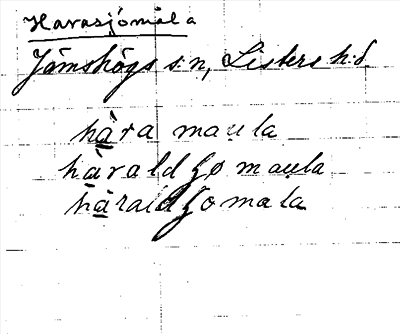 Harasjömåla
Jämshögs s:n, Listers h:d.
hàra mau̯la
hàraldʒo mau̯la
hàraldʒomala